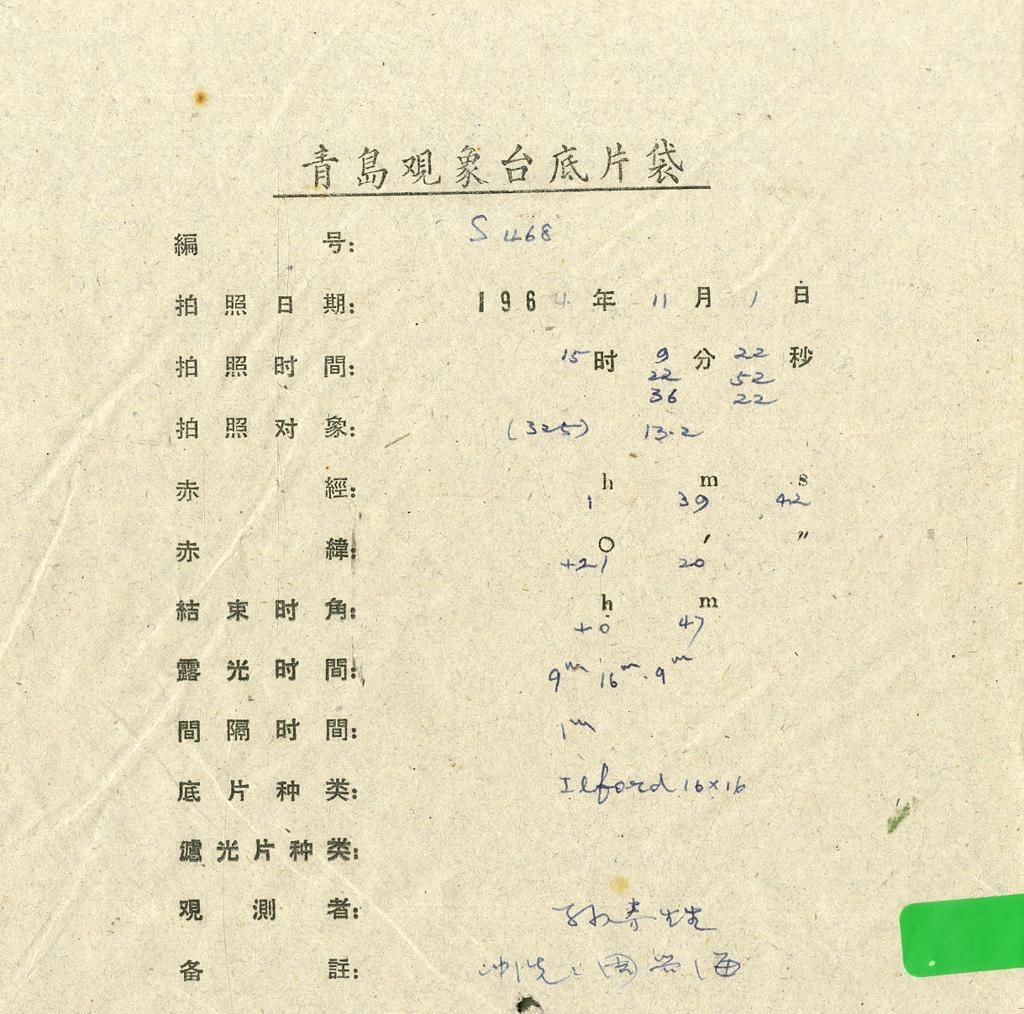 青島观象台底片袋
編号: S 468
拍照日期: 1964年11月1日
拍照时間: 15时9分22秒
22 52
36 22
拍照对象: (325) 13.2
赤經: 1h 39m 42s
赤緯: +21° 20′ ″
結束时角: +0h 47m
露光时間: 9m 16m. 9m
間隔时間: 1m
底片种类: Ilford 16×16
濾光片种类:
观測者:
备註: 冲洗: